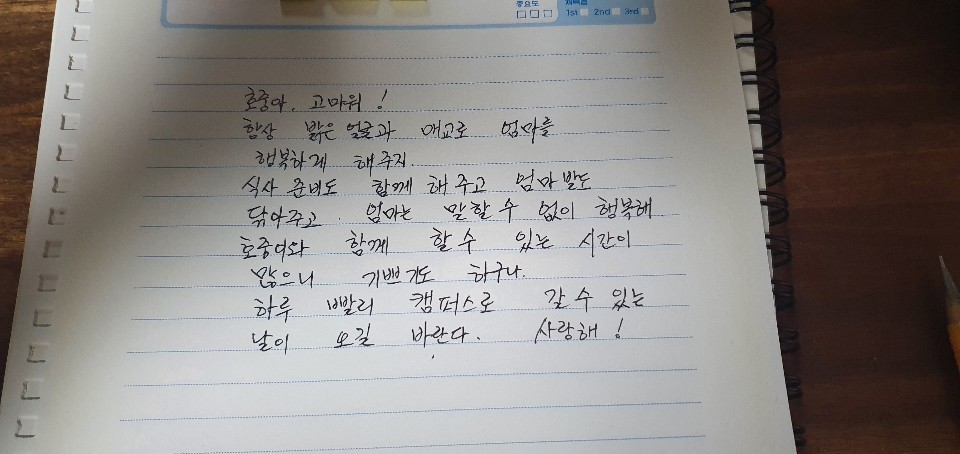 중요도 체크란
1st 2nd 3rd
호중아, 고마워!
항상 밝은 얼굴과 애교로 엄마를
행복하게 해주지.
식사 준비도 함께 해 주고 엄마 발도
닦아주고. 엄마는 말할 수 없이 행복해
호중이와 함께 할 수 있는 시간이
많으니 기쁘기도 하구나.
하루 빨리 캠퍼스로 갈 수 있는
날이 오길 바란다. 사랑해!